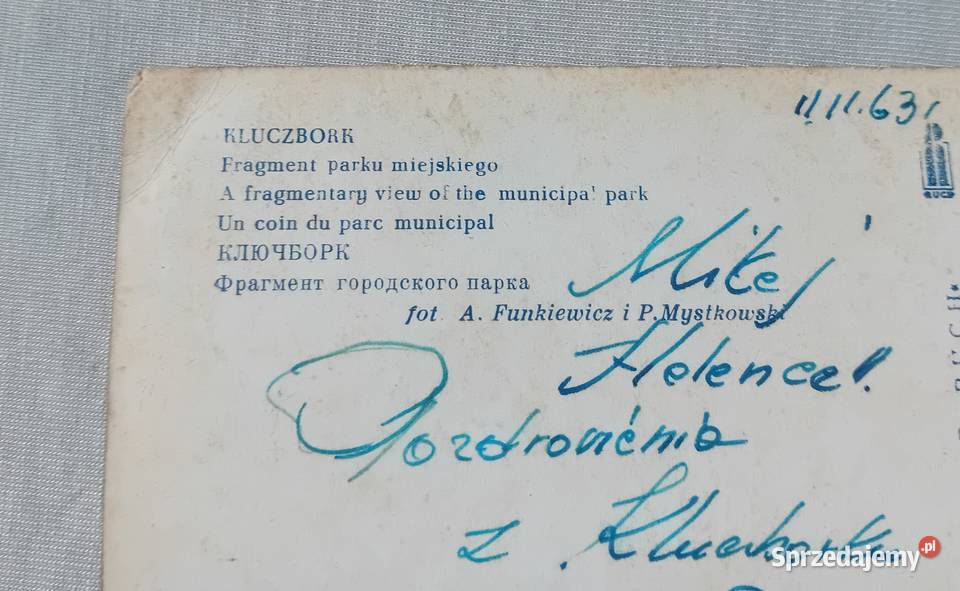 11.11.63
KLUCZBORK
Fragment parku miejskiego
A fragmentary view of the municipal park
Un coin du parc municipal
КЛЮЧБОРК
Фрагмент городского парка
fot A. Funkiewicz i P. Mystkowski
Miłej
Helence!
Pozdrowienia
z Kluczborka
RUCH
Sprzedajemy.pl